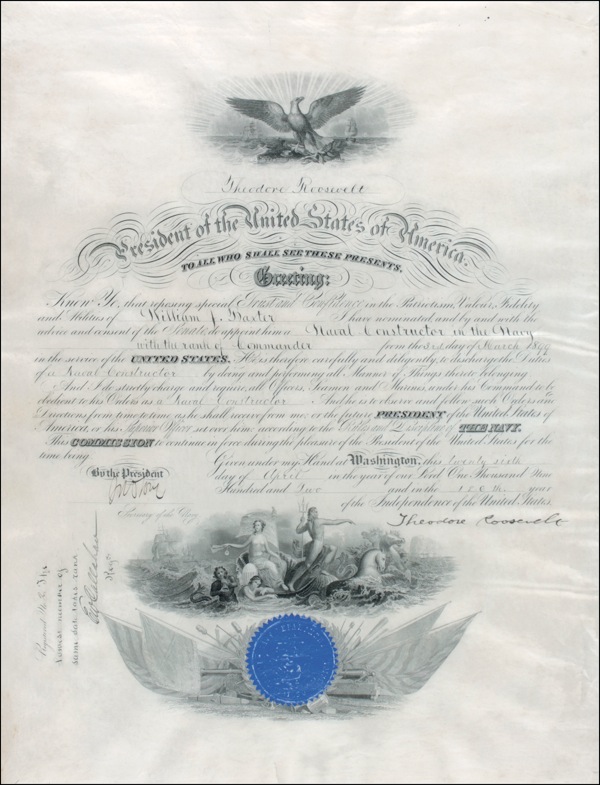 Theodore Roosevelt
President of the United States of America.
TO ALL WHO SHALL SEE THESE PRESENTS,
Greeting:
Know Ye, that reposing special Trust and Confidence in the Patriotism, Valour, Fidelity
and Abilities of William J. Baxter I have nominated and by and with the
advice and consent of the Senate do appoint him a Naval Constructor in the Navy
with the rank of Commander from the 3rd day of March 1899
in the service of the UNITED STATES. He is therefore carefully and diligently to discharge the Duties
of a Naval Constructor by doing and performing all Manner of Things thereto belonging.
And I do strictly charge and require all Officers, Seamen and Marines under his Command to be
obedient to his Orders as a Naval Constructor And he is to observe and follow such Orders and
Directions from time to time as he shall receive from me, or the future PRESIDENT of the United States of
America, or his Superior Officer set over him, according to the Rules and Discipline of THE NAVY.
This COMMISSION to continue in force during the pleasure of the President of the United States for the
time being.
Given under my Hand at Washington, this twenty sixth
day of April in the year of our Lord One Thousand Nine
Hundred and Two and in the 126th year
of the Independence of the United States.
By the President
Secretary of the Navy.
Theodore Roosevelt